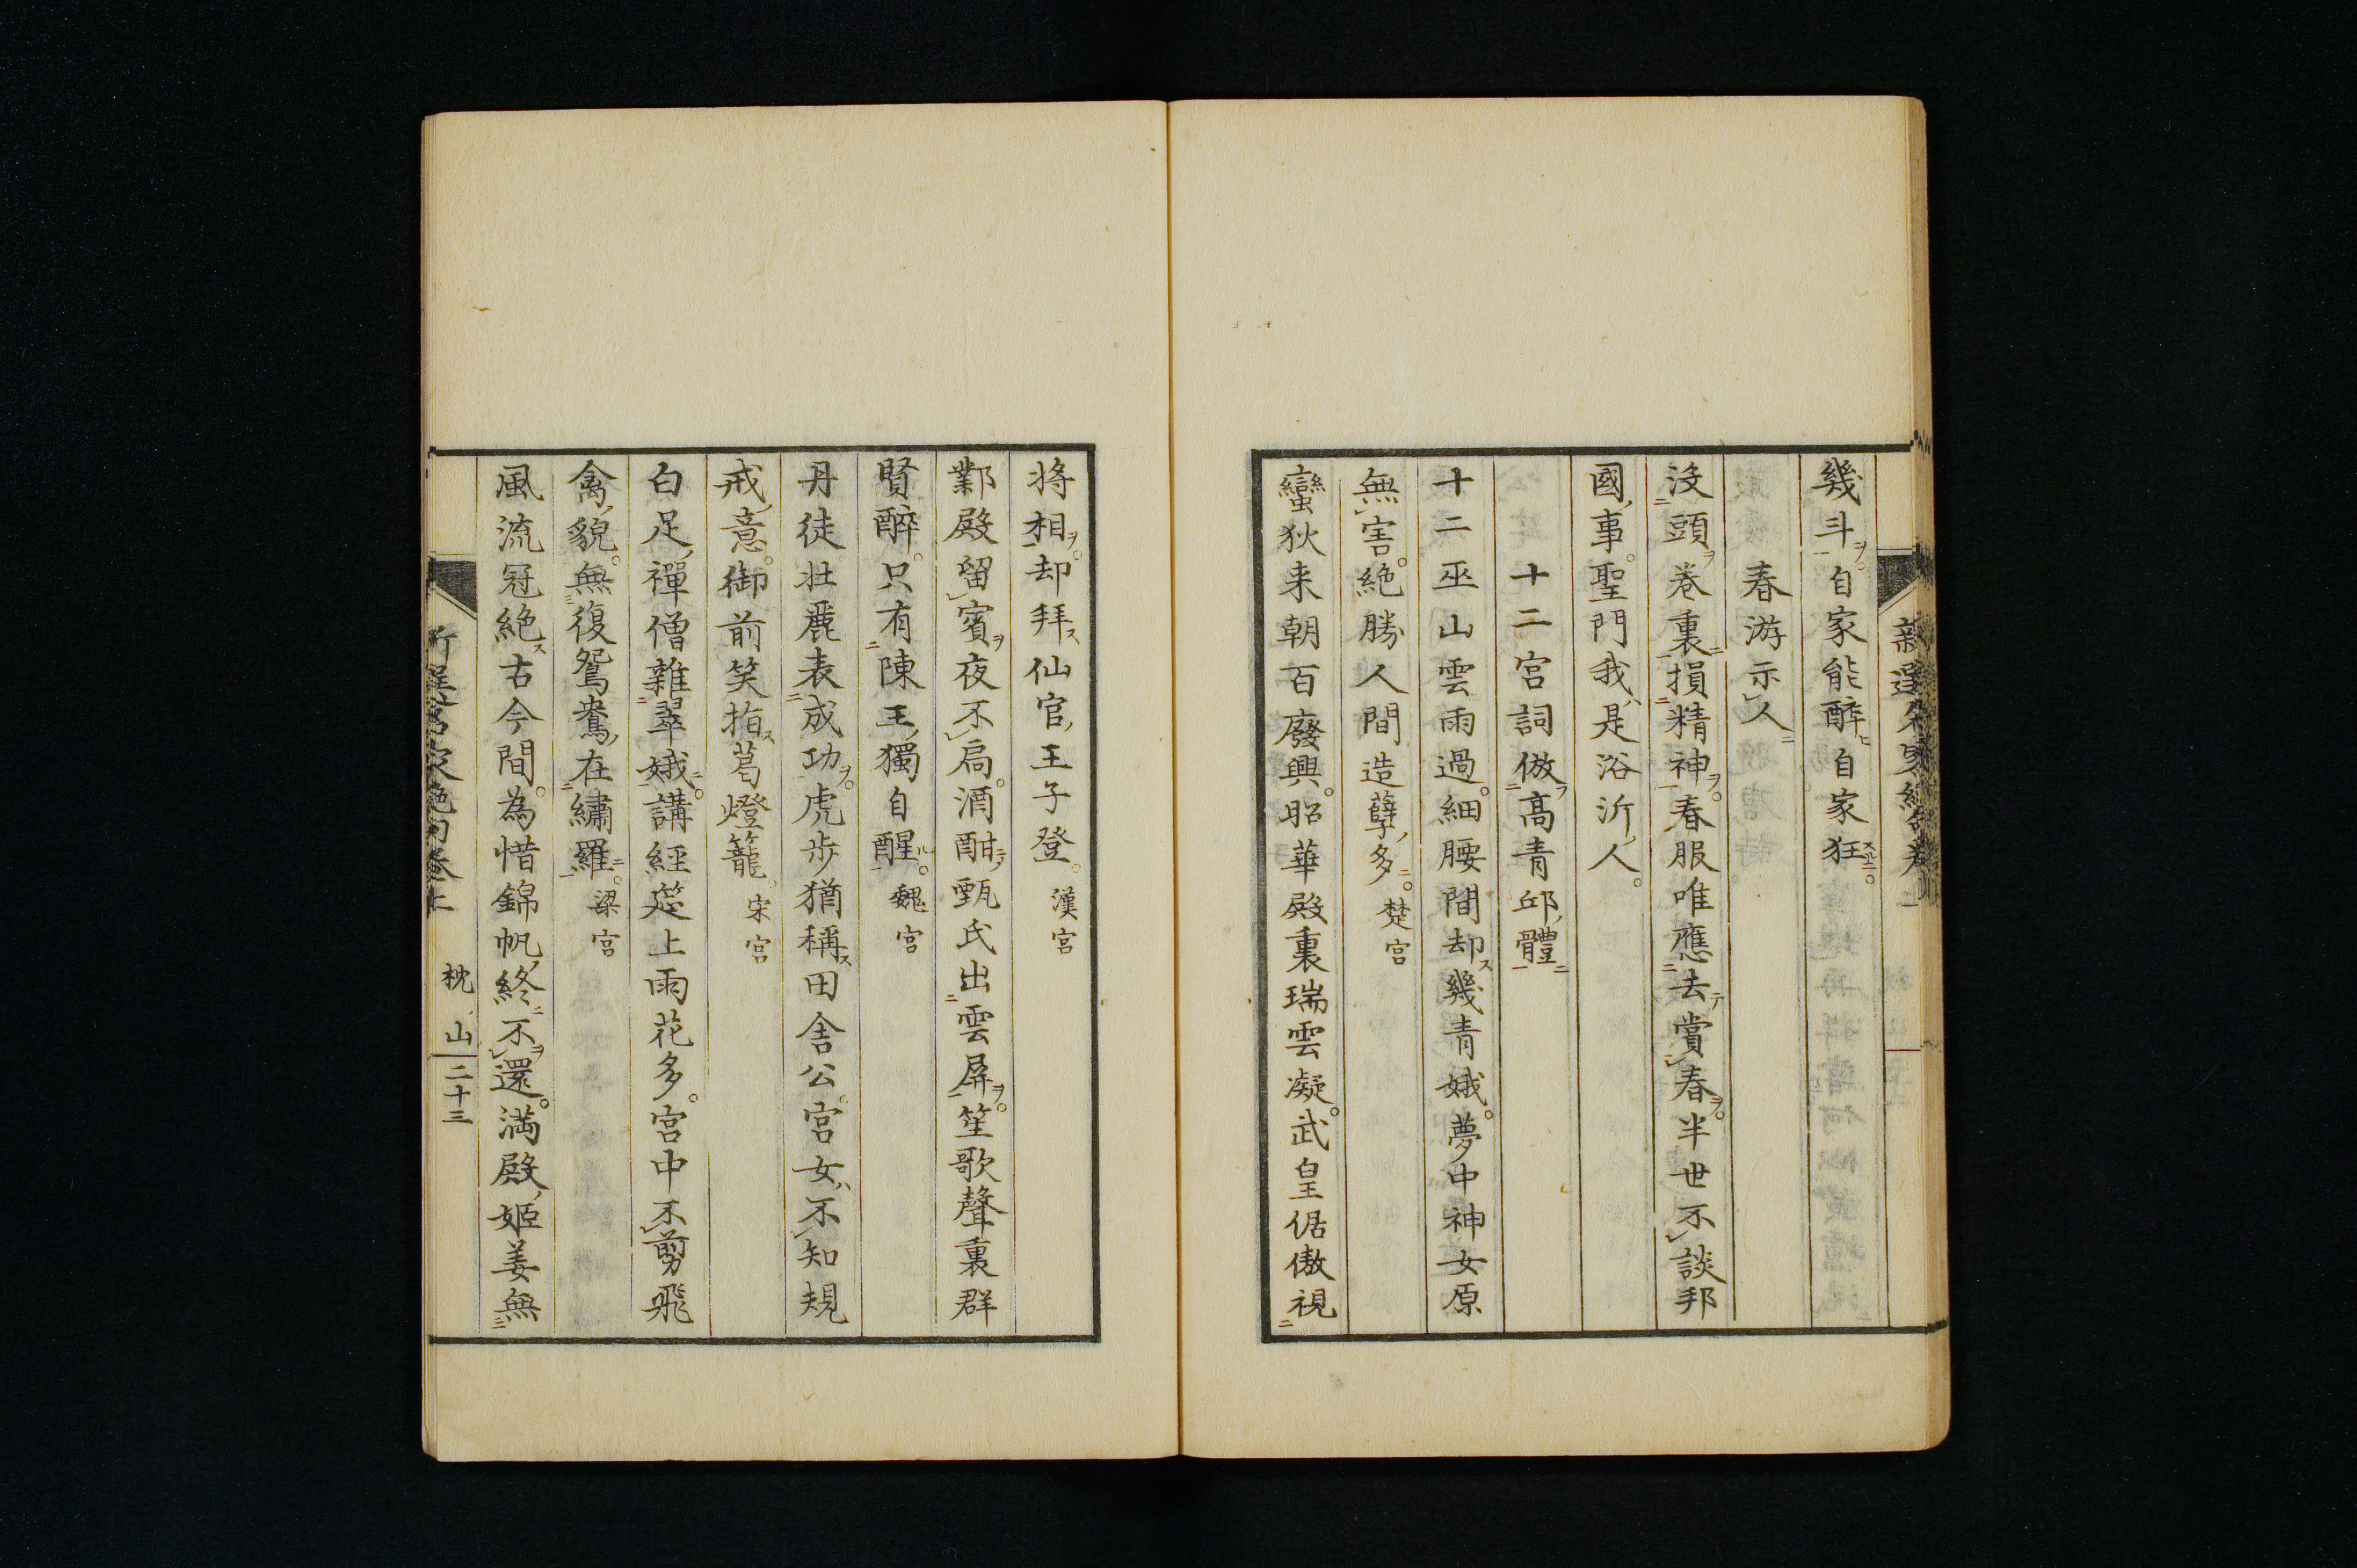 幾斗自家能醉自家狂
春游示人
沒頭卷裏損精神春服唯應去賞春半世不談邦
國事聖門我是浴沂人
十二宮詞倣高青邱體
十二巫山雲雨過細腰間却幾青娥夢中神女原
無害絶勝人間造孽多楚宮
蠻狄来朝百廢興昭華殿裏瑞雲凝武皇倨傲視
將相却拜仙官王子登漢宮
鄴殿留賓夜不扃酒酣甄氏出雲屏笙歌聲裏群
賢醉只有陳王獨自醒魏宮
丹徒壮麗表成功虎歩猶稱田舍公宮女不知規
戒意御前笑指葛燈籠宋宮
白足禪僧雜翠娥講經筵上雨花多宮中不剪飛
禽貌無復鴛鴦在繡羅梁宮
風流冠絶古今間為惜錦帆終不還満殿姫姜無
枕山 二十三